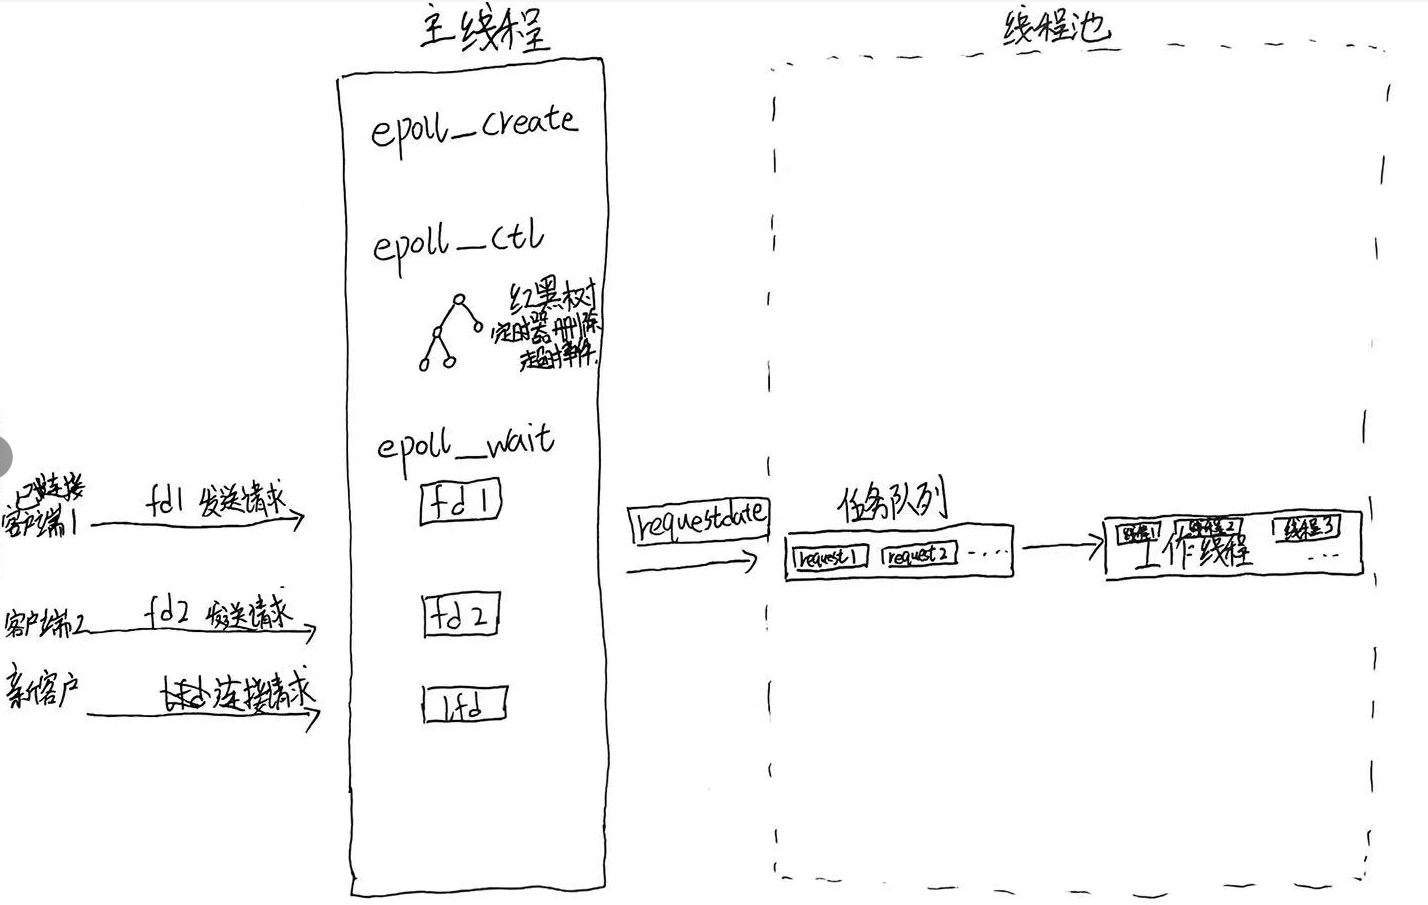 主线程
线程池
epoll_create
epoll_ctl
红黑树
定时器删除
超时事件.
epoll_wait
已连接
客户端1
fd1 发送请求
fd1
客户端2
fd2 发送请求
fd2
新客户
连接请求
lfd
requestdate
任务队列
request1
request2
....
线程1
线程2
线程3
工作线程
...